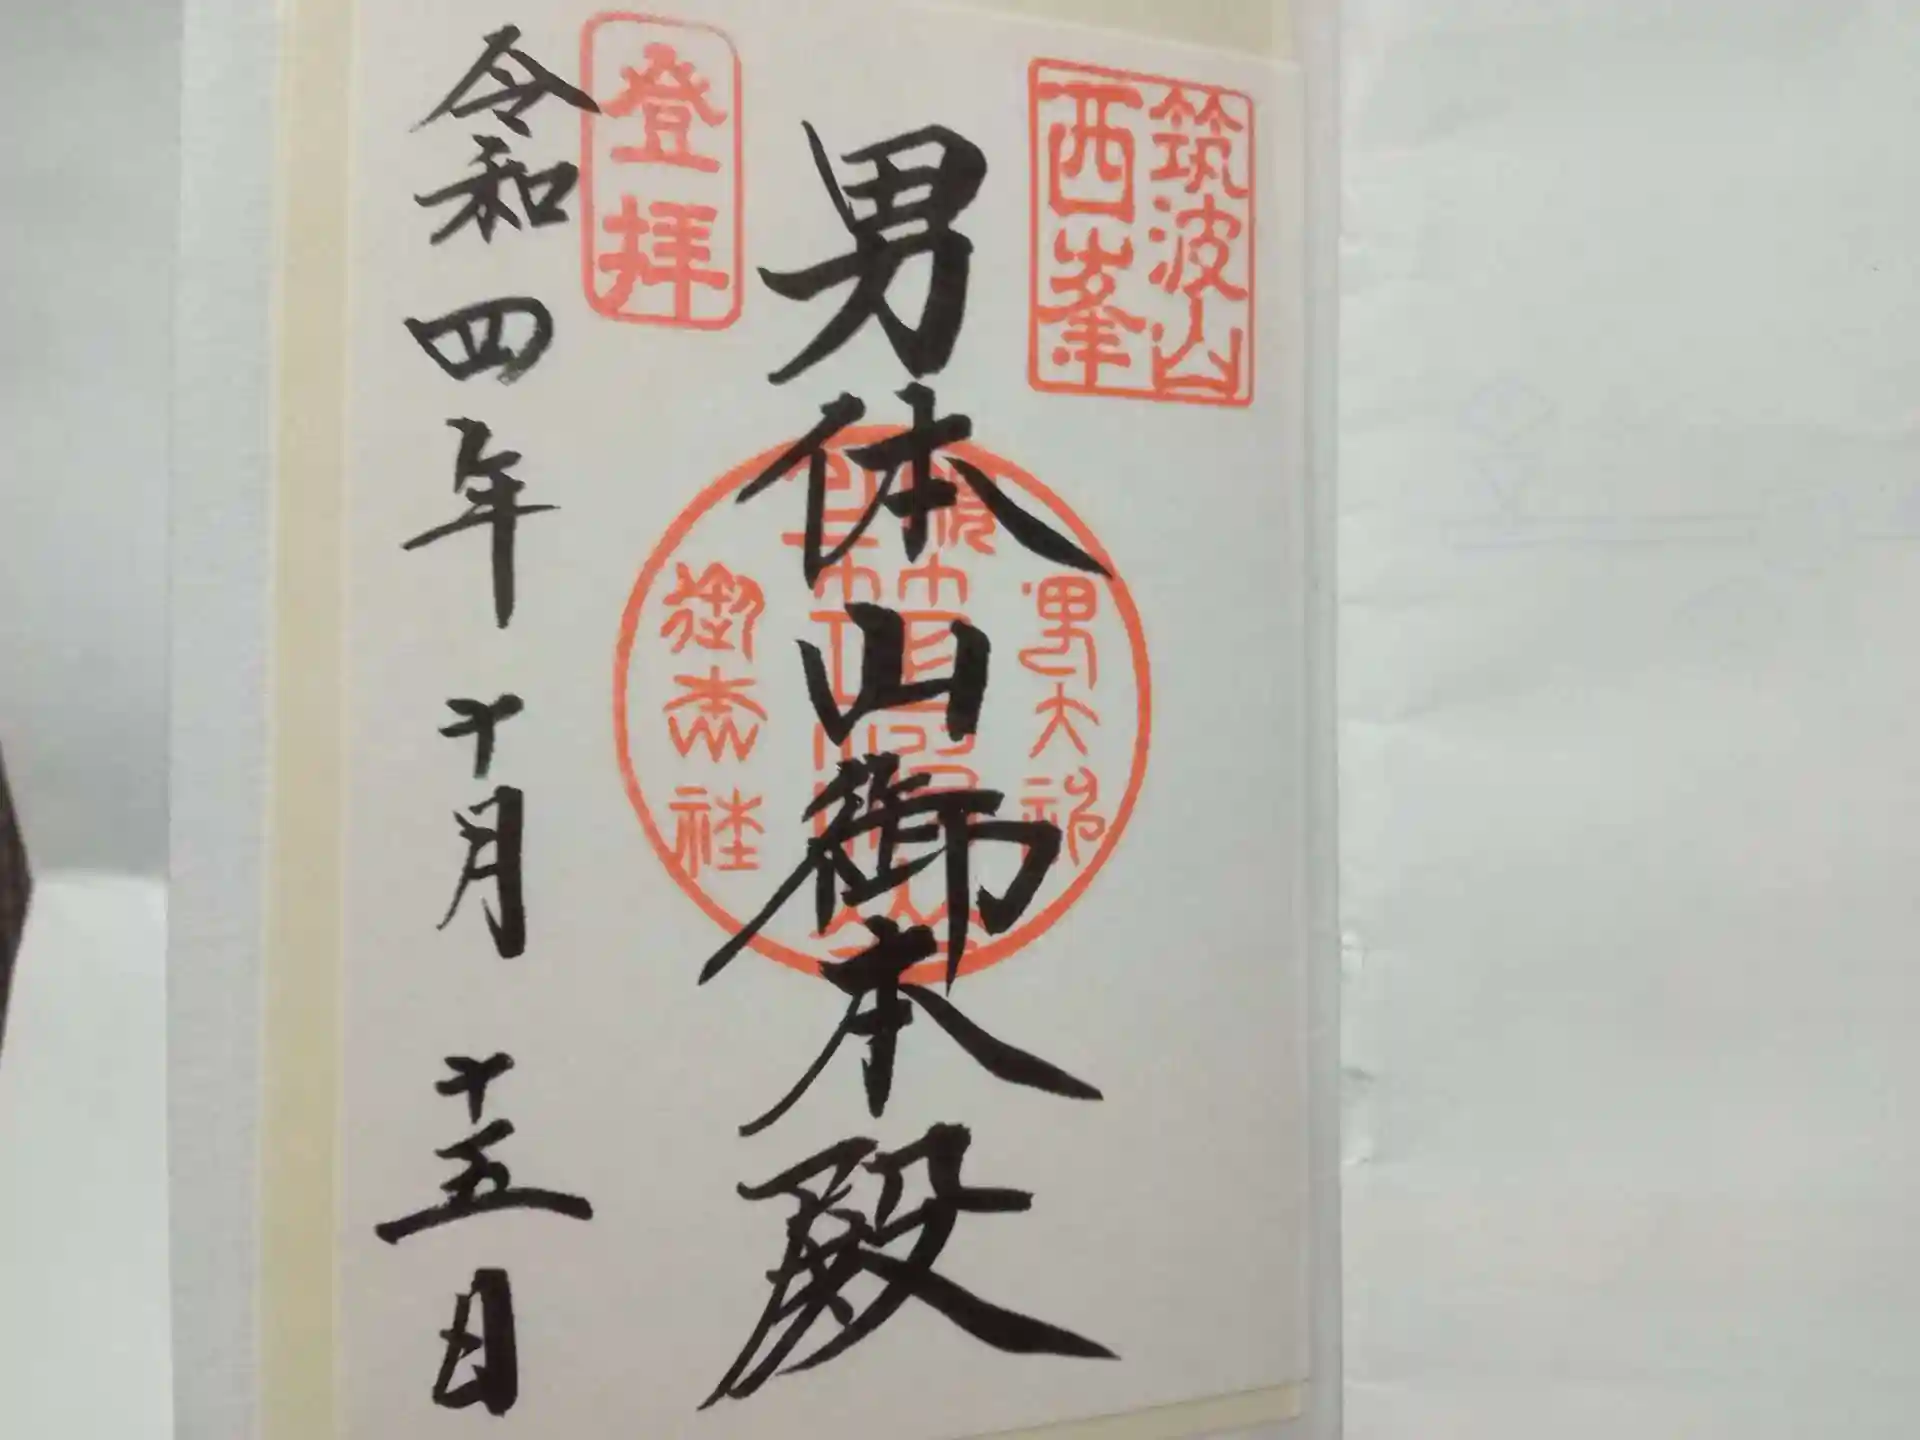 筑波山
西峯
男体山御本殿
男大神
御本社
登拝
令和四年十月十五日